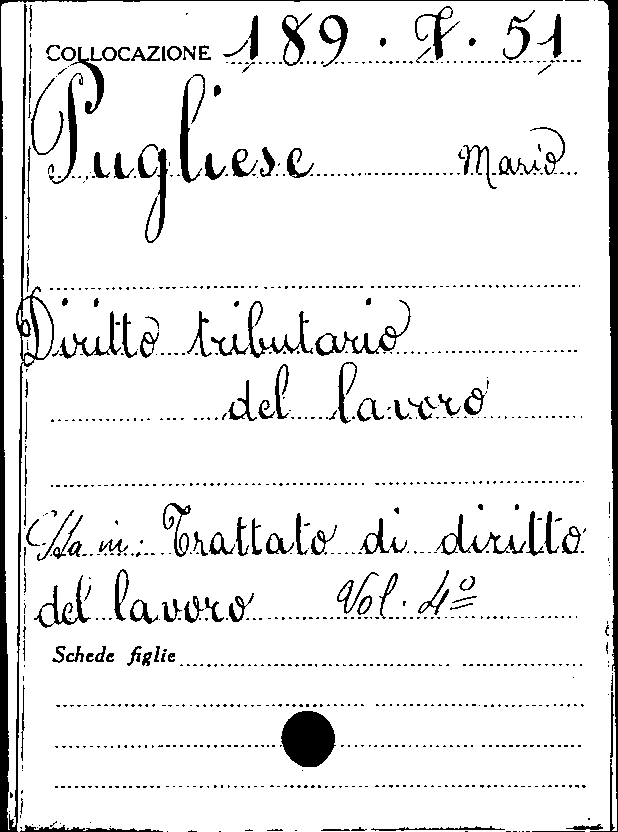 COLLOCAZIONE 189. F. 51
Pugliese Mario
Diritto tributario
del lavoro
Sta in: Trattato di diritto
del lavoro Vol. 4º
Schede figlie